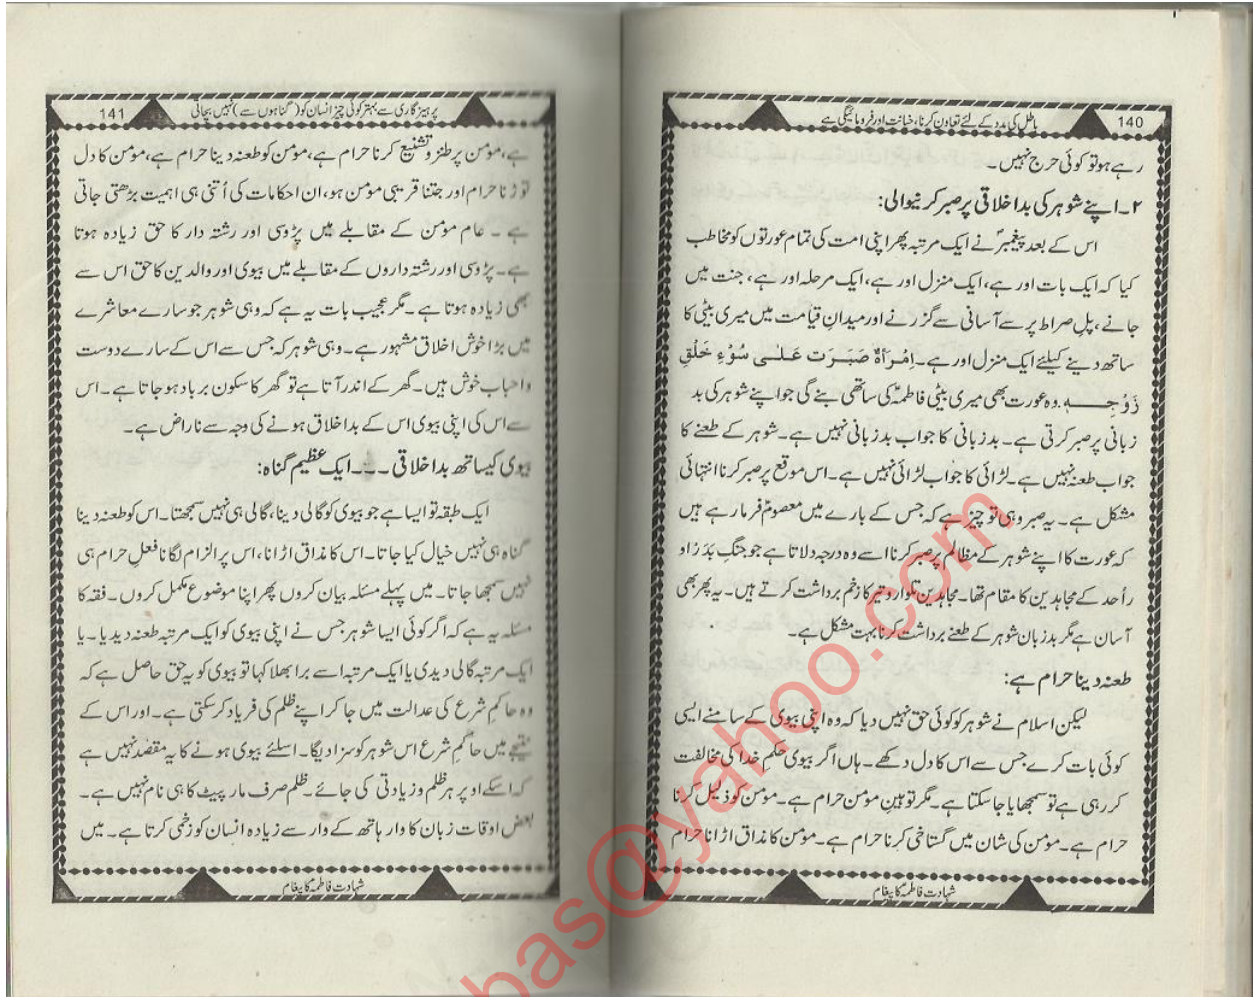 140
باطل کی مدد کے لئے تعاون کرنا، خیانت اور فرومائیگی ہے
رہے ہو تو کوئی حرج نہیں۔
۲۔ اپنے شوہر کی بداخلاقی پر صبر کرنیوالی:
اس کے بعد پیغمبرؐ نے ایک مرتبہ پھر اپنی امت کی تمام عورتوں کو مخاطب
کیا کہ ایک بات اور ہے، ایک منزل اور ہے، ایک مرحلہ اور ہے، جنت میں
جانے، پل صراط پر سے آسانی سے گزرنے اور میدانِ قیامت میں میری بیٹی کا
ساتھ دینے کیلئے ایک منزل اور ہے۔ اِمْرَأةٌ صَبَرَت عَلٰی سُوْءِ خَلْقِ
زَوْجِهِ۔ وہ عورت بھی میری بیٹی فاطمہؑ کی ساتھی بنے گی جو اپنے شوہر کی بد
زبانی پر صبر کرتی ہے۔ بدزبانی کا جواب بدزبانی نہیں ہے۔ شوہر کے طعنے کا
جواب طعنہ نہیں ہے۔ لڑائی کا جواب لڑائی نہیں ہے۔ اس موقع پر صبر کرنا انتہائی
مشکل ہے۔ یہ صبر وہی تو چیز ہے کہ جس کے بارے میں معصومؑ فرما رہے ہیں
کہ عورت کا اپنے شوہر کے مظالم پر صبر کرنا اسے وہ درجہ دلاتا ہے جو جنگِ بدر او
ر اُحد کے مجاہدین کا مقام تھا۔ مجاہدین تلوار و تیر کا زخم برداشت کرتے ہیں۔ یہ پھر بھی
آسان ہے مگر بدزبان شوہر کے طعنے برداشت کرنا بہت مشکل ہے۔
طعنہ دینا حرام ہے:
لیکن اسلام نے شوہر کو کوئی حق نہیں دیا کہ وہ اپنی بیوی کے سامنے ایسی
کوئی بات کرے جس سے اس کا دل دکھے۔ ہاں اگر بیوی حکمِ خدا کی مخالفت
کر رہی ہے تو سمجھایا جا سکتا ہے۔ مگر توہینِ مومن حرام ہے۔ مومن کو ذلیل کرنا
حرام ہے۔ مومن کی شان میں گستاخی کرنا حرام ہے۔ مومن کا مذاق اڑانا حرام
شہادت فاطمہؑ کا پیغام
141
پرہیزگاری سے بہتر کوئی چیز انسان کو (گناہوں سے) نہیں بچاتی
ہے، مومن پر طنز و تشنیع کرنا حرام ہے، مومن کو طعنہ دینا حرام ہے، مومن کا دل
توڑنا حرام اور جتنا قریبی مومن ہو، ان احکامات کی اُتنی ہی اہمیت بڑھتی جاتی
ہے۔ عام مومن کے مقابلے میں پڑوسی اور رشتہ دار کا حق زیادہ ہوتا
ہے۔ پڑوسی اور رشتہ داروں کے مقابلے میں بیوی اور والدین کا حق اس سے
بھی زیادہ ہوتا ہے۔ مگر عجیب بات یہ ہے کہ وہی شوہر جو سارے معاشرے
میں بڑا خوش اخلاق مشہور ہے۔ وہی شوہر کہ جس سے اس کے سارے دوست
و احباب خوش ہیں۔ گھر کے اندر آتا ہے تو گھر کا سکون برباد ہو جاتا ہے۔ اس
سے اس کی اپنی بیوی اس کے بداخلاق ہونے کی وجہ سے ناراض ہے۔
بیوی کیساتھ بداخلاقی ۔۔۔ ایک عظیم گناہ:
ایک طبقہ تو ایسا ہے جو بیوی کو گالی دینا، گالی ہی نہیں سمجھتا۔ اس کو طعنہ دینا
گناہ ہی نہیں خیال کیا جاتا۔ اس کا مذاق اڑانا، اس پر الزام لگانا فعلِ حرام ہی
نہیں سمجھا جاتا۔ میں پہلے مسئلہ بیان کروں پھر اپنا موضوع مکمل کروں۔ فقہ کا
مسئلہ یہ ہے کہ اگر کوئی ایسا شوہر جس نے اپنی بیوی کو ایک مرتبہ طعنہ دیدیا۔ یا
ایک مرتبہ گالی دیدی یا ایک مرتبہ اسے برا بھلا کہا تو بیوی کو یہ حق حاصل ہے کہ
وہ حاکمِ شرع کی عدالت میں جا کر اپنے ظلم کی فریاد کر سکتی ہے۔ اور اس کے
نتیجے میں حاکمِ شرع اس شوہر کو سزا دیگا۔ اسلئے بیوی ہونے کا یہ مقصد نہیں ہے
کہ اسکے اوپر ہر ظلم و زیادتی کی جائے۔ ظلم صرف مار پیٹ کا ہی نام نہیں ہے۔
بعض اوقات زبان کا وار ہاتھ کے وار سے زیادہ انسان کو زخمی کرتا ہے۔ میں
شہادت فاطمہؑ کا پیغام
bas@yahoo.com